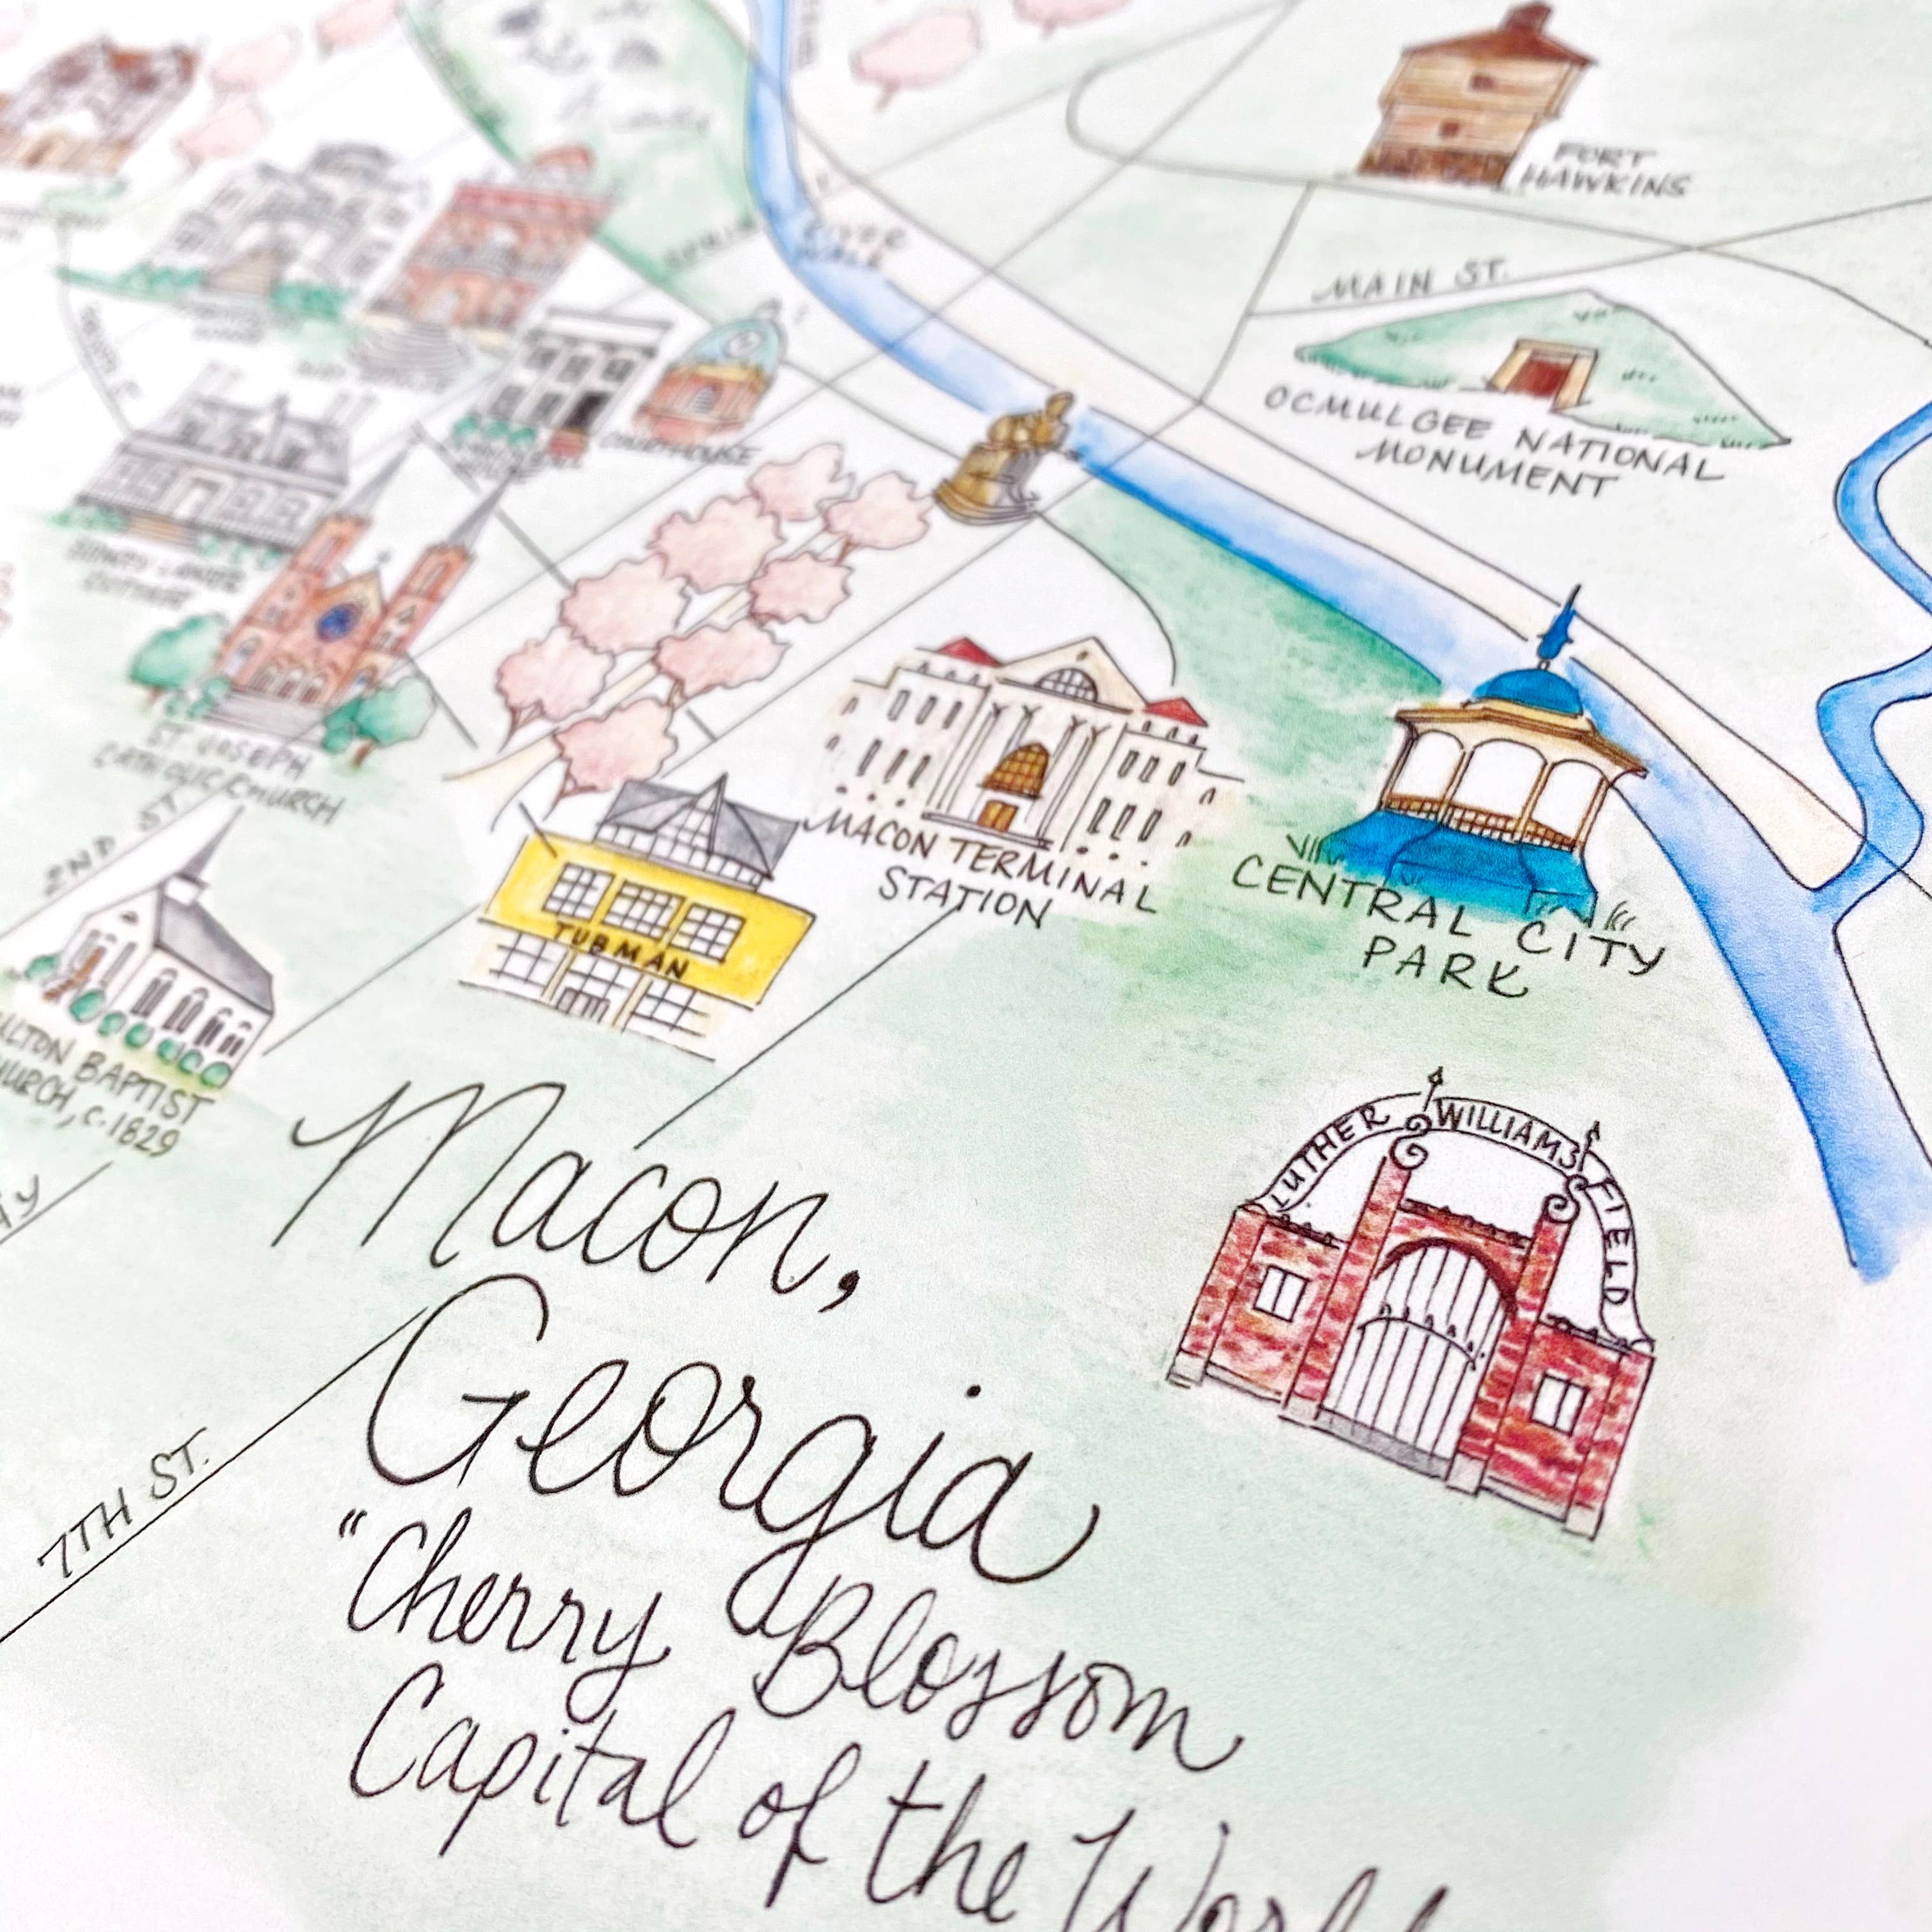 FORT
HAWKINS
MAIN ST.
OCMULGEE NATIONAL
MONUMENT
RIVER
WALK
COURTHOUSE
COTTAGE
ST. JOSEPH
CATHOLIC CHURCH
2ND ST.
MACON TERMINAL
STATION
CENTRAL CITY
PARK
TUBMAN
BAPTIST
c. 1829
LUTHER WILLIAMS FIELD
7TH ST.
Macon,
Georgia
"Cherry Blossom
Capital of the